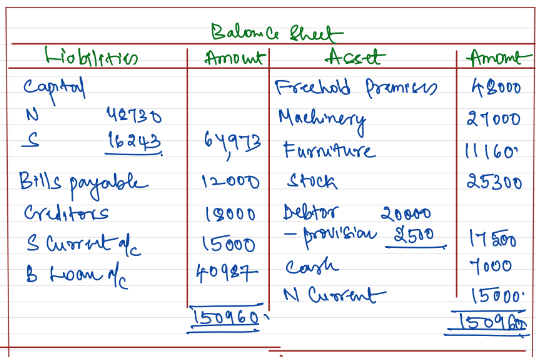 Balance Sheet
Liabilities Amount Asset Amount
Capital Freehold Premises 48000
N 48730 Machinery 27000
S 16243 64,973 Furniture 11160
Bills payable 12000 Stock 25300
Creditors 18000 Debtor 20000
S Current a/c 15000 - provision 2500 17500
B Loan a/c 40987 Cash 7000
N Current 15000
150960 150960